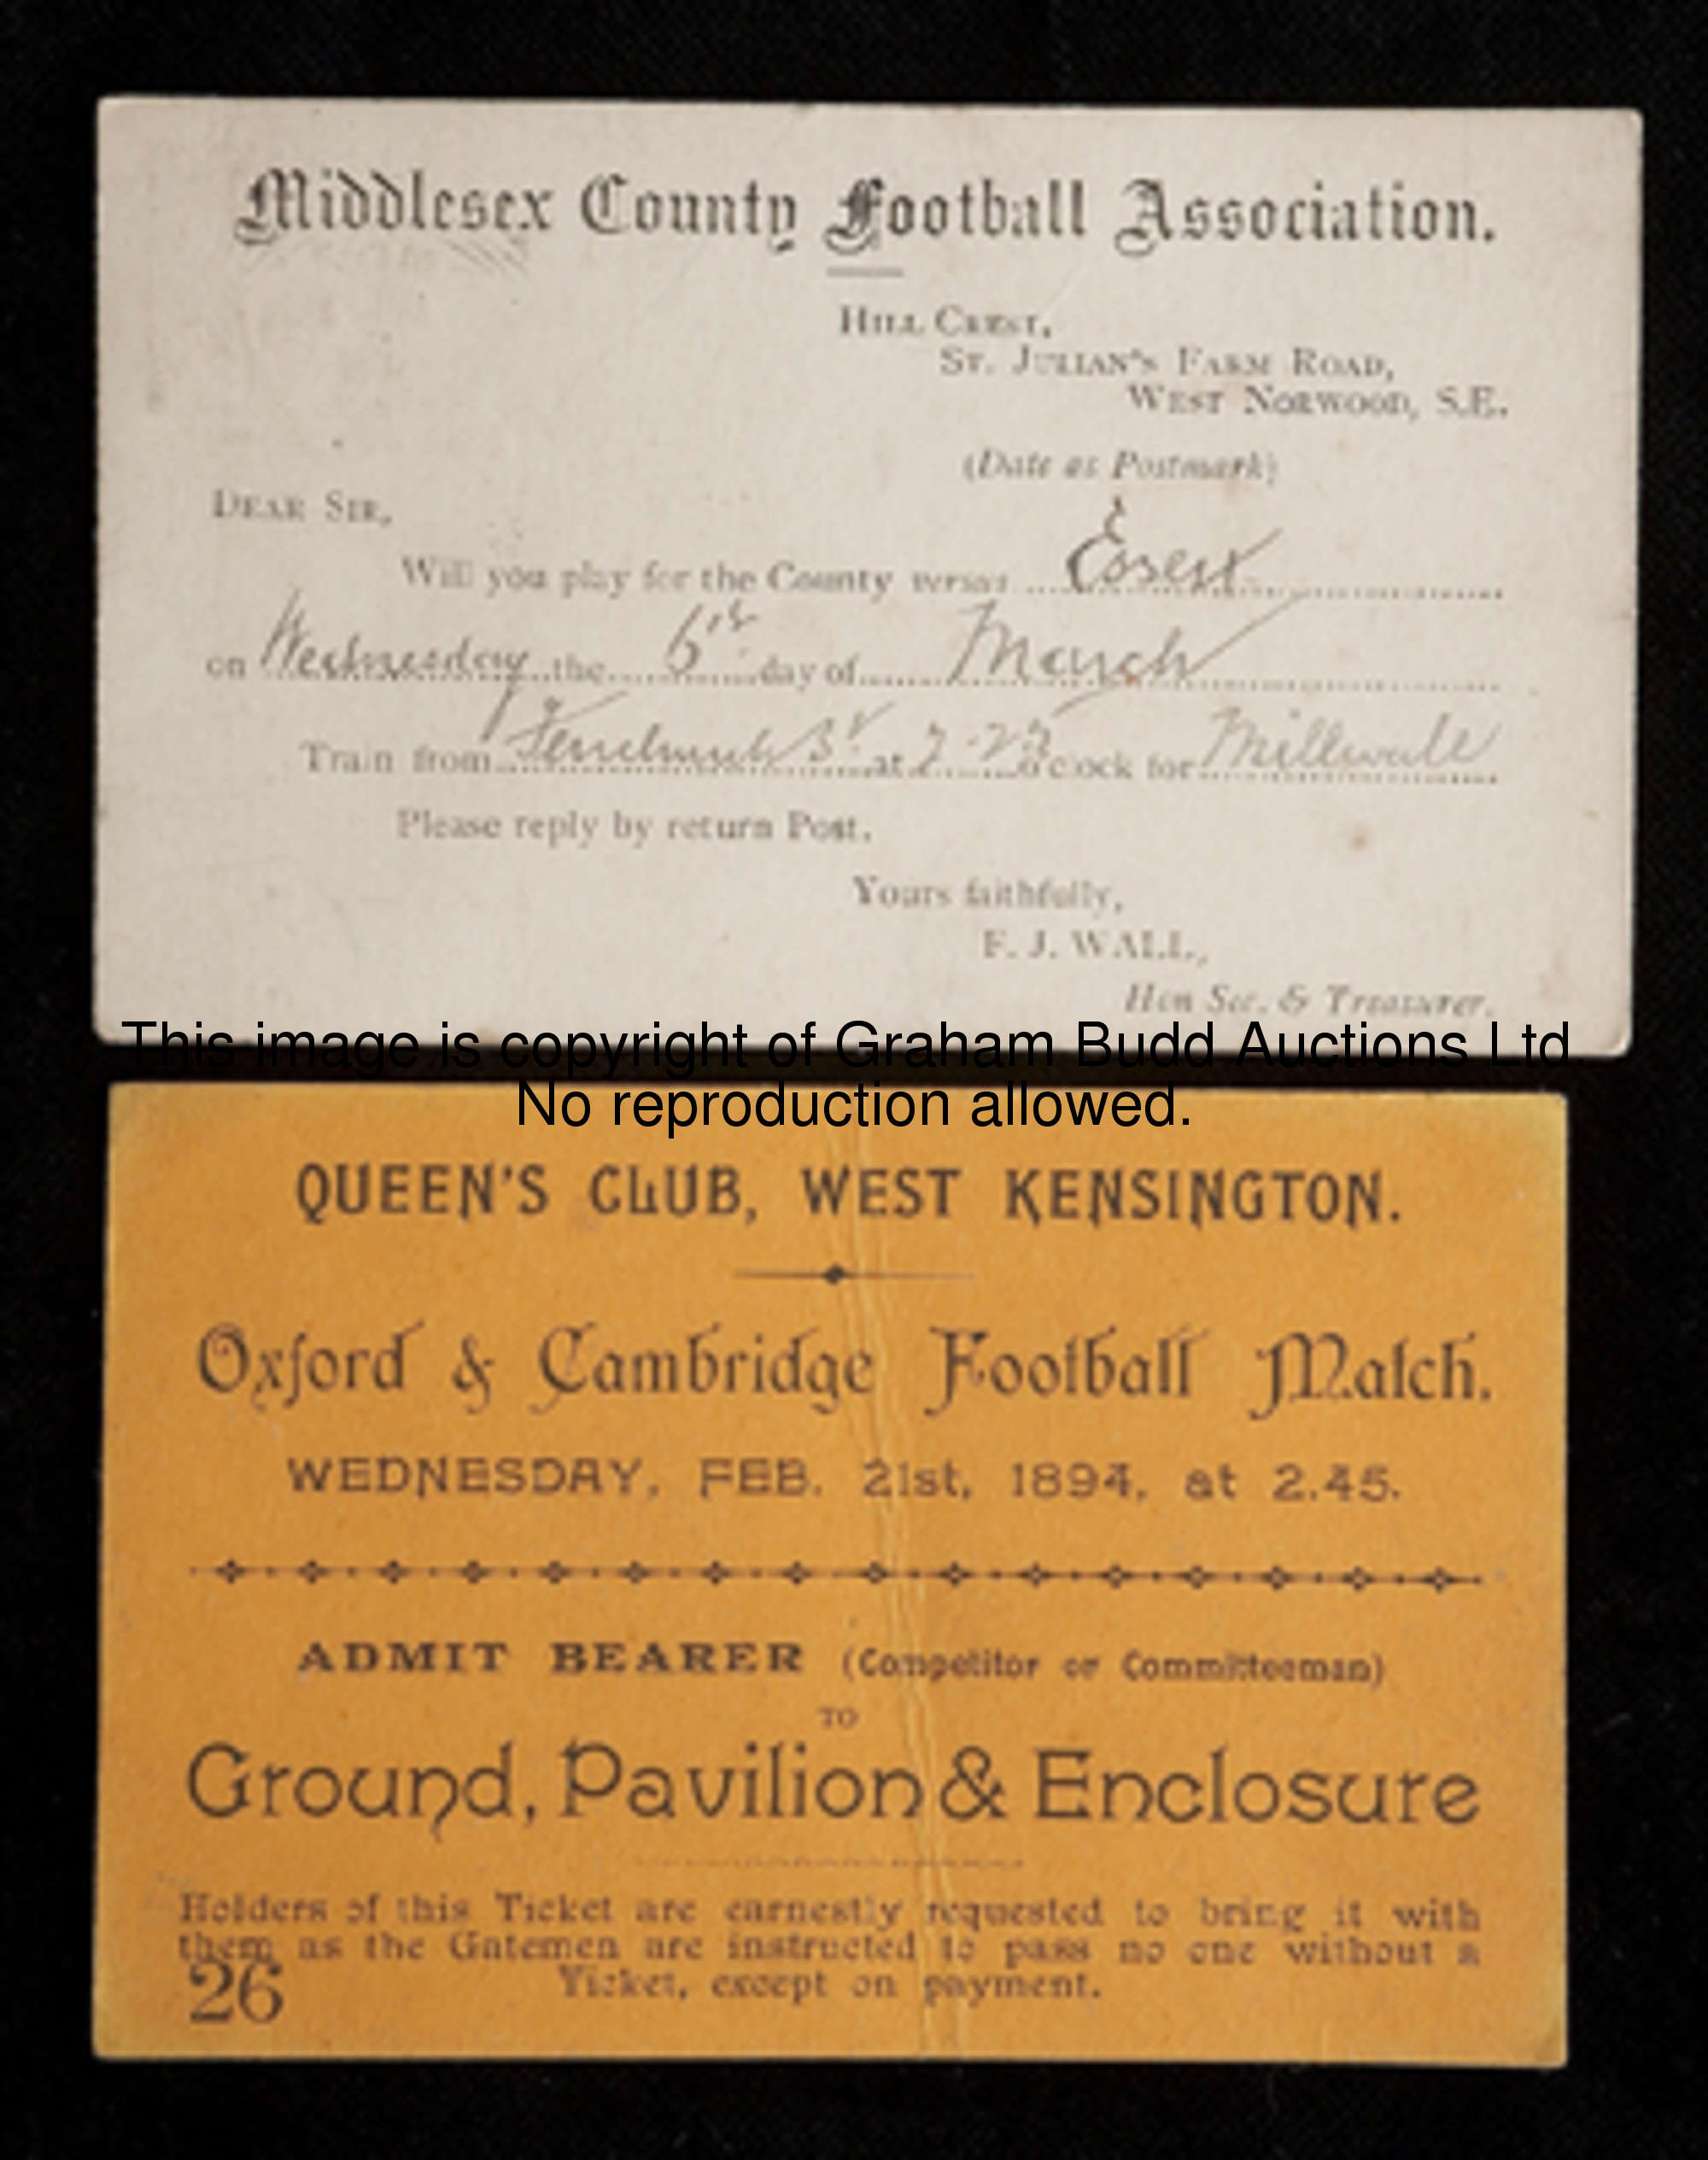 Middlesex County Football Association.
Hill Crest,
St. Julian's Farm Road,
West Norwood, S.E.
(Date as Postmark)
Dear Sir,
Will you play for the County versus Essex
on Wednesday the 6th day of March
Train from Fenchurch St at 2-27 o'clock for Millwall
Please reply by return Post.
Yours faithfully,
F. J. WALL,
Hon Sec. & Treasurer.
This image is copyright of Graham Budd Auctions Ltd
No reproduction allowed.
QUEEN'S CLUB, WEST KENSINGTON.
Oxford & Cambridge Football Match.
WEDNESDAY, FEB. 21st, 1894, at 2.45.
ADMIT BEARER (Competitor or Committeeman)
TO
Ground, Pavilion & Enclosure
Holders of this Ticket are earnestly requested to bring it with
them as the Gatemen are instructed to pass no one without a
Ticket, except on payment.
26